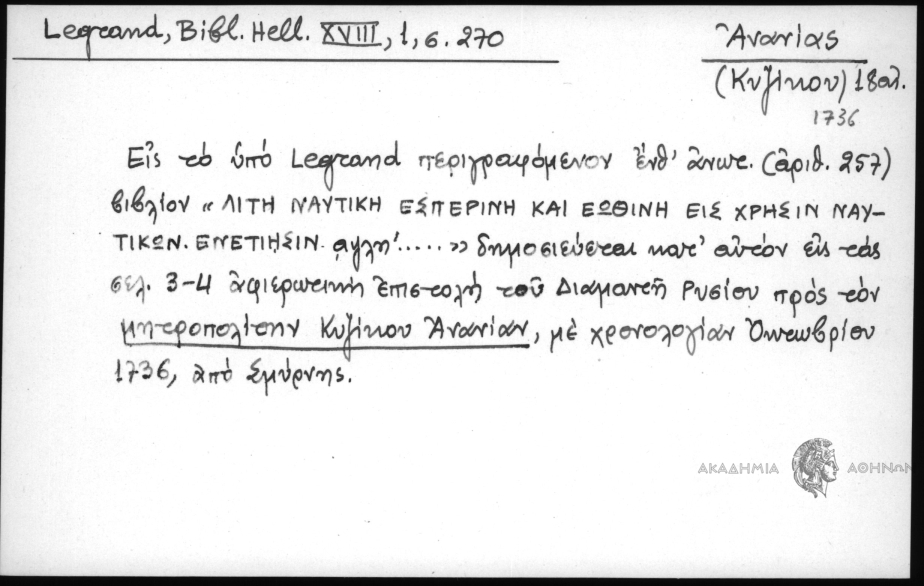 Legrand, Bibl. Hell. XVIII, 1, σ. 270
Ἀνανίας
(Κυζίκου) 18 αἰ.
1736
Εἰς τὸ ὑπὸ Legrand περιγραφόμενον ἔνθ' ἀνωτ. (ἀριθ. 257)
βιβλίον « ΛΙΤΗ ΝΑΥΤΙΚΗ ΕΣΠΕΡΙΝΗ ΚΑΙ ΕΩΘΙΝΗ ΕΙΣ ΧΡΗΣΙΝ ΝΑΥ-
ΤΙΚΩΝ. ΕΝΕΤΙΗΣΙΝ. αψλη'..... » δημοσιεύεται κατ' αὐτὸν εἰς τὰς
σελ. 3-4 ἀφιερωτικὴ ἐπιστολὴ τοῦ Διαμαντῆ Ρυσίου πρὸς τὸν
μητροπολίτην Κυζίκου Ἀνανίαν, μὲ χρονολογίαν Ὀκτωβρίου
1736, ἀπὸ Σμύρνης.
ΑΚΑΔΗΜΙΑ ΑΘΗΝΩΝ